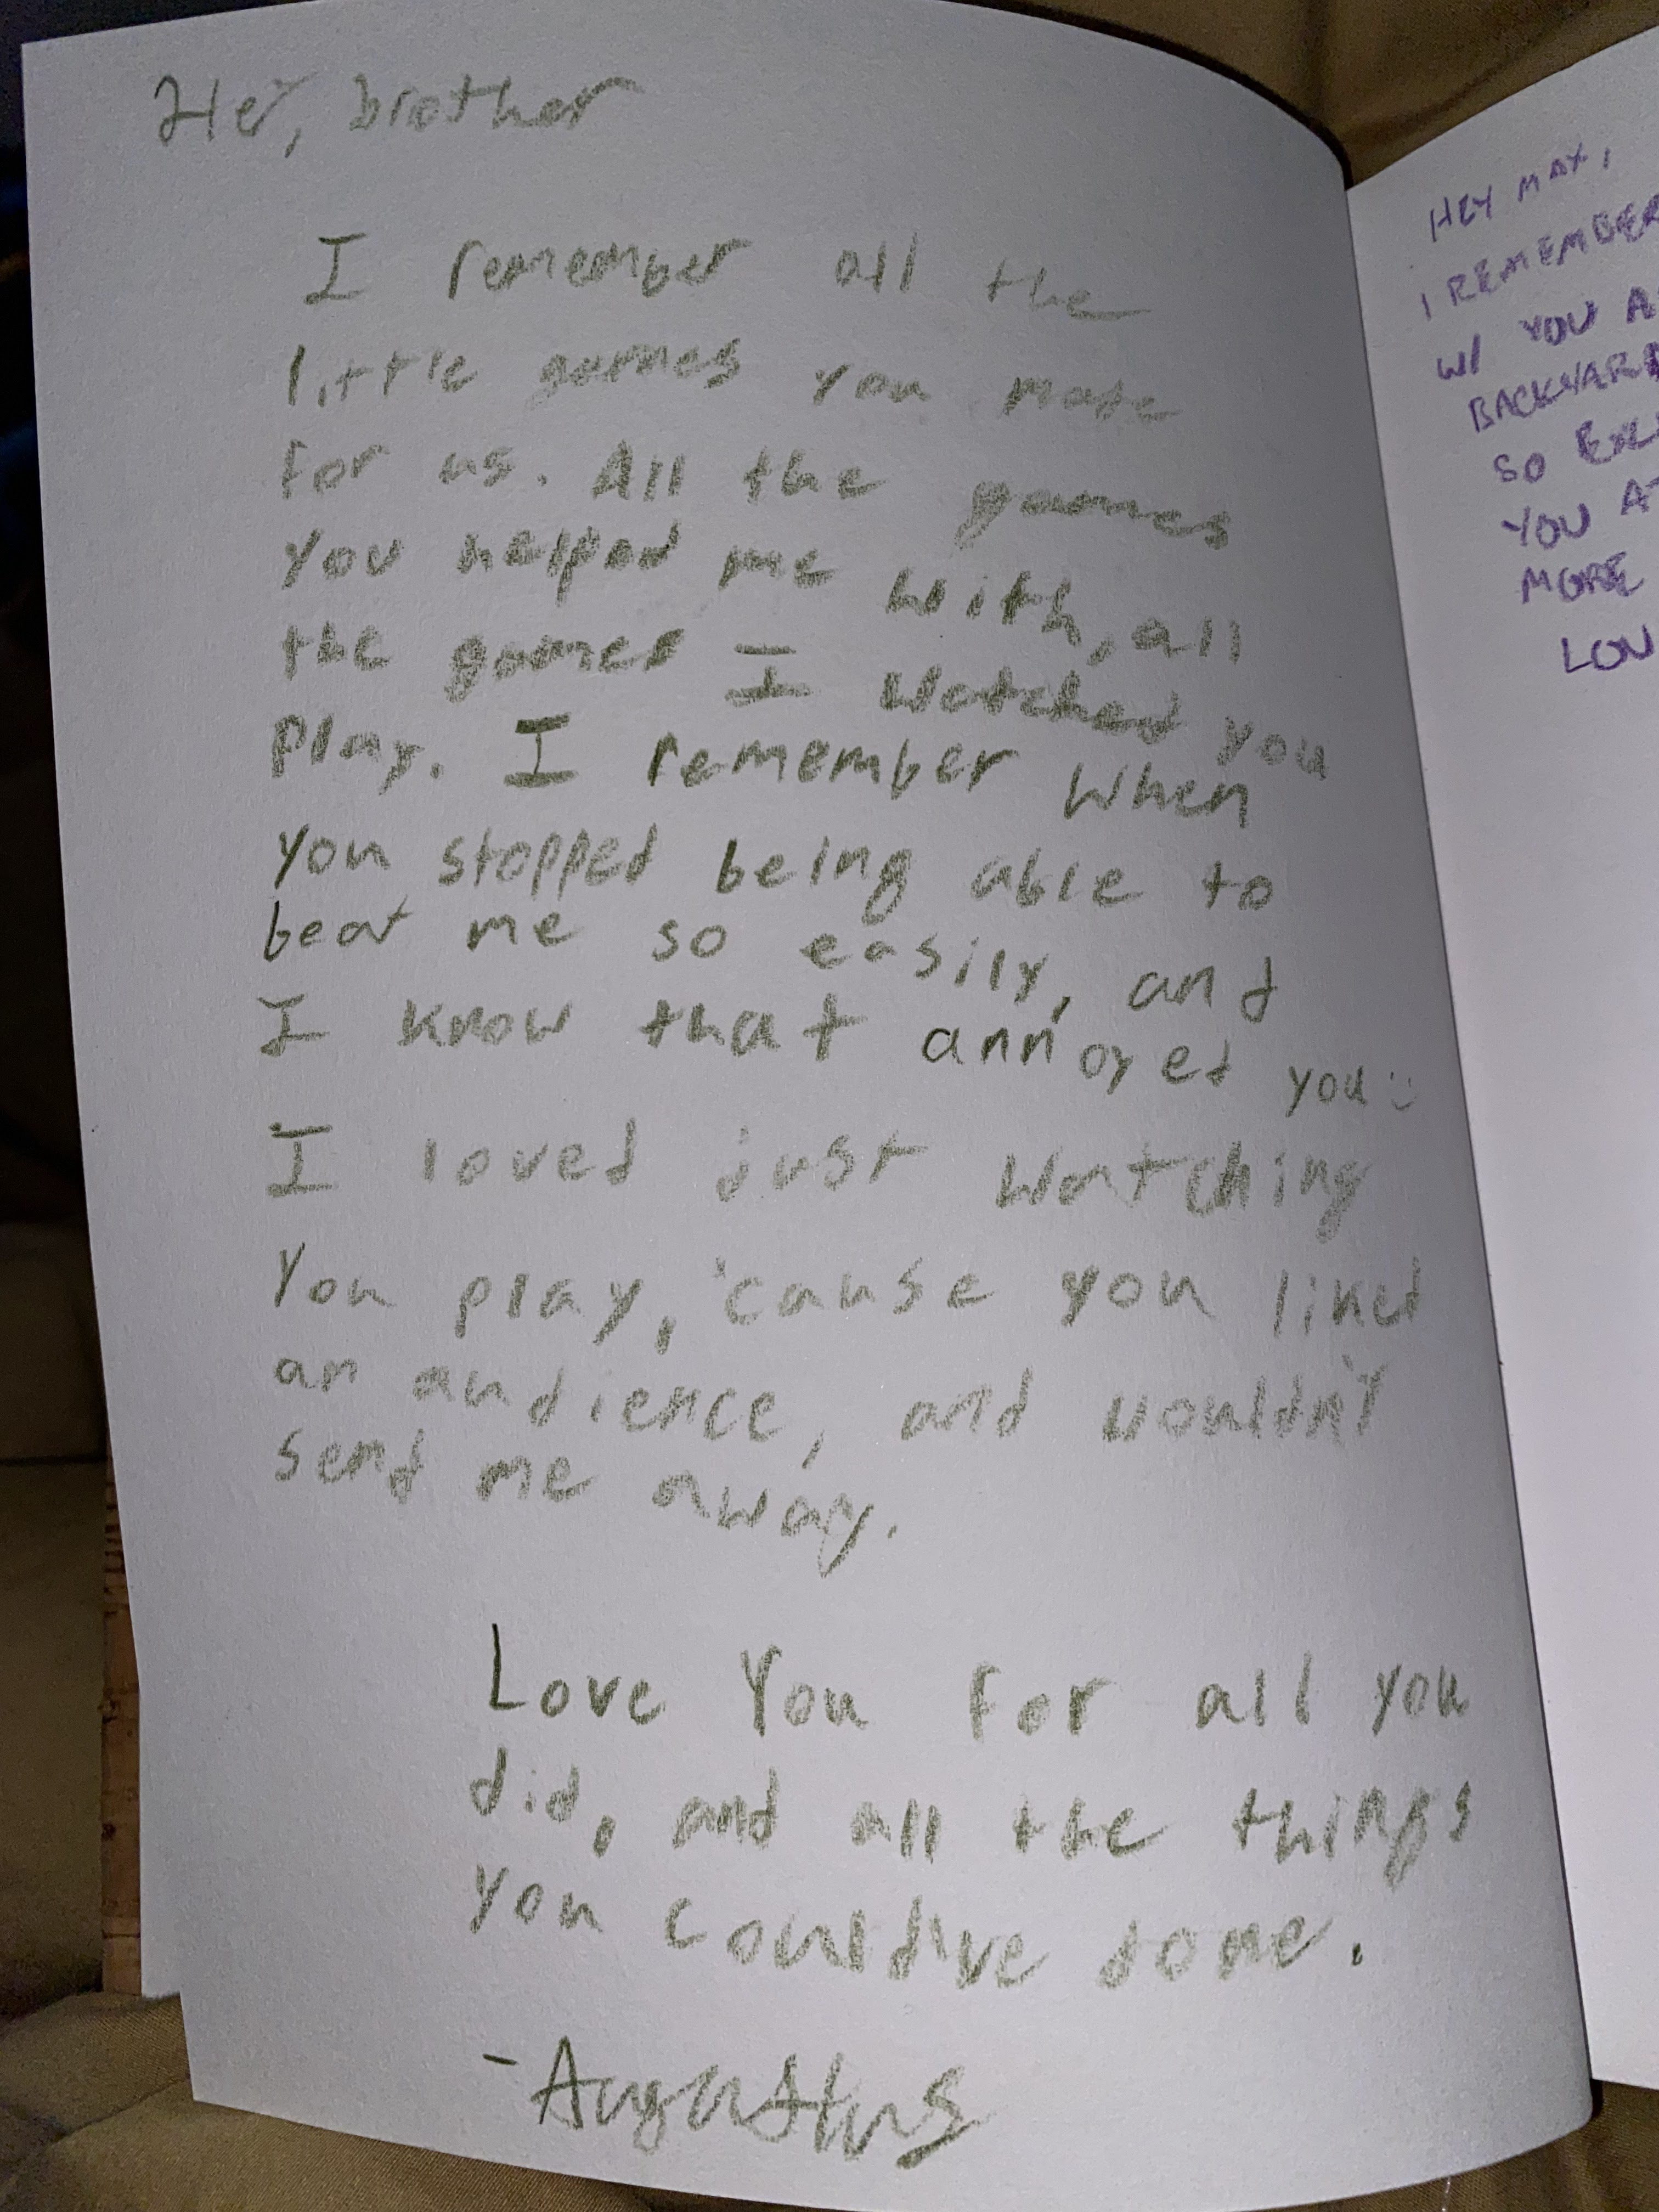 Hey, brother
I remember all the
little games you made
for us. All the games
you helped me with, all
the games I watched you
play. I remember when
you stopped being able to
beat me so easily, and
I know that annoyed you :)
I loved just watching
you play, 'cause you liked
an audience, and wouldn't
send me away.
Love You for all you
did, and all the things
you could've done.
-Augustus
HEY MAX,
I REMEMBER
W/ YOU
BACKYARD
SO
YOU
MORE